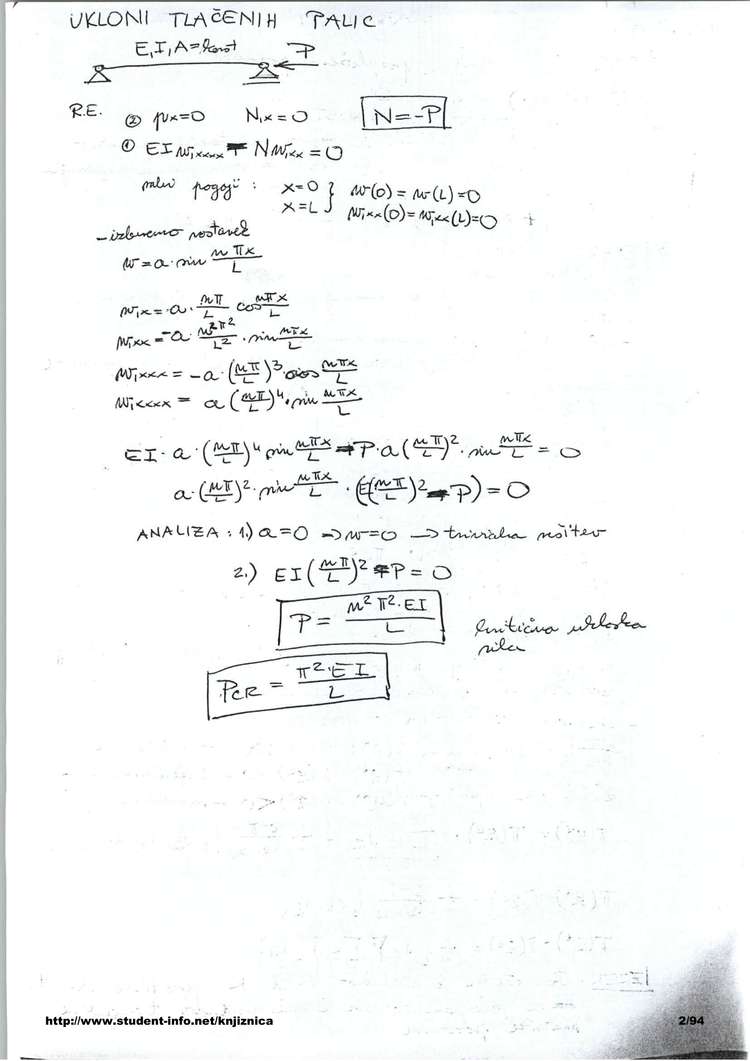 UKLONI TLAČENIH PALIC
E, I, A = konst P
R.E. ② px=0 N,x=0 N=-P
① EI w,xxxx - N w,xx = 0
robni pogoji: x=0 } w(0)=w(L)=0
x=L } w,xx(0)=w,xx(L)=0
- izberemo nastavek
w = a·sin nπx/L
w,x = a·nπ/L cos nπx/L
w,xx = -a·n²π²/L²·sin nπx/L
w,xxx = -a·(nπ/L)³·cos nπx/L
w,xxxx = a(nπ/L)⁴·sin nπx/L
EI·a·(nπ/L)⁴ sin nπx/L - P·a(nπ/L)²·sin nπx/L = 0
a·(nπ/L)²·sin nπx/L·(EI(nπ/L)² - P) = 0
ANALIZA: 1.) a=0 → w=0 → trivialna rešitev
2.) EI(nπ/L)² - P = 0
P = n²π²·EI/L
kritična uklonska
sila
PCR = π²·EI/L
http://www.student-info.net/knjiznica 2/94